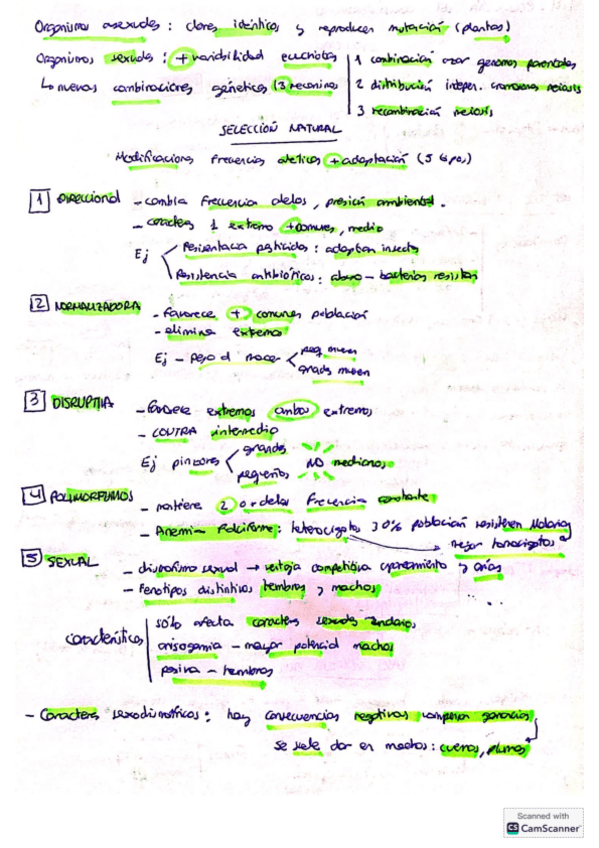 Organismos asexuales: clones idénticos y reproducen mutación (plantas)
Organismos sexuales: + variabilidad eucariotas | 1 combinación azar genomas parentales
↳ nuevas combinaciones genéticas (3 mecanismos) | 2 distribución indepen. cromosomas meiosis
3 recombinación meiosis
SELECCIÓN NATURAL
Modificaciones Frecuencias alélicas + adaptación (5 tipos)
1 DIRECCIONAL - cambia Frecuencia alelos, presión ambiental.
- caracteres 1 extremo + comunes, medio
Ej Resistencia pesticidas: adaptan insectos
Resistencia antibióticos: abuso - bacterias resisten
2 NORMALIZADORA - Favorece + comunes población
- elimina extremos
Ej - peso al nacer peq mueren
grands mueren
3 DISRUPTIVA - favorece extremos ambos extremos
- CONTRA intermedio
Ej pinzones grandes NO medianos
pequeños
4 POLIMORFISMOS - mantiene 2 o + alelos Frecuencia constante
- Anemi- Falciforme: heterocigotos 30% población resisten Malaria y
mejor homocigotos
5 SEXUAL - dismorfismo sexual → ventaja competitiva apareamiento y crías
- Fenotipos distintivos hembras y machos
Características sólo afecta caracteres sexuales
anisogamia - mayor potencial machos
pasiva - hembras
- Caracteres sexodismórficos: hay consecuencias negativas compensan ganancias
se suele dar en machos: cuernos, plumas
Scanned with
CS CamScanner